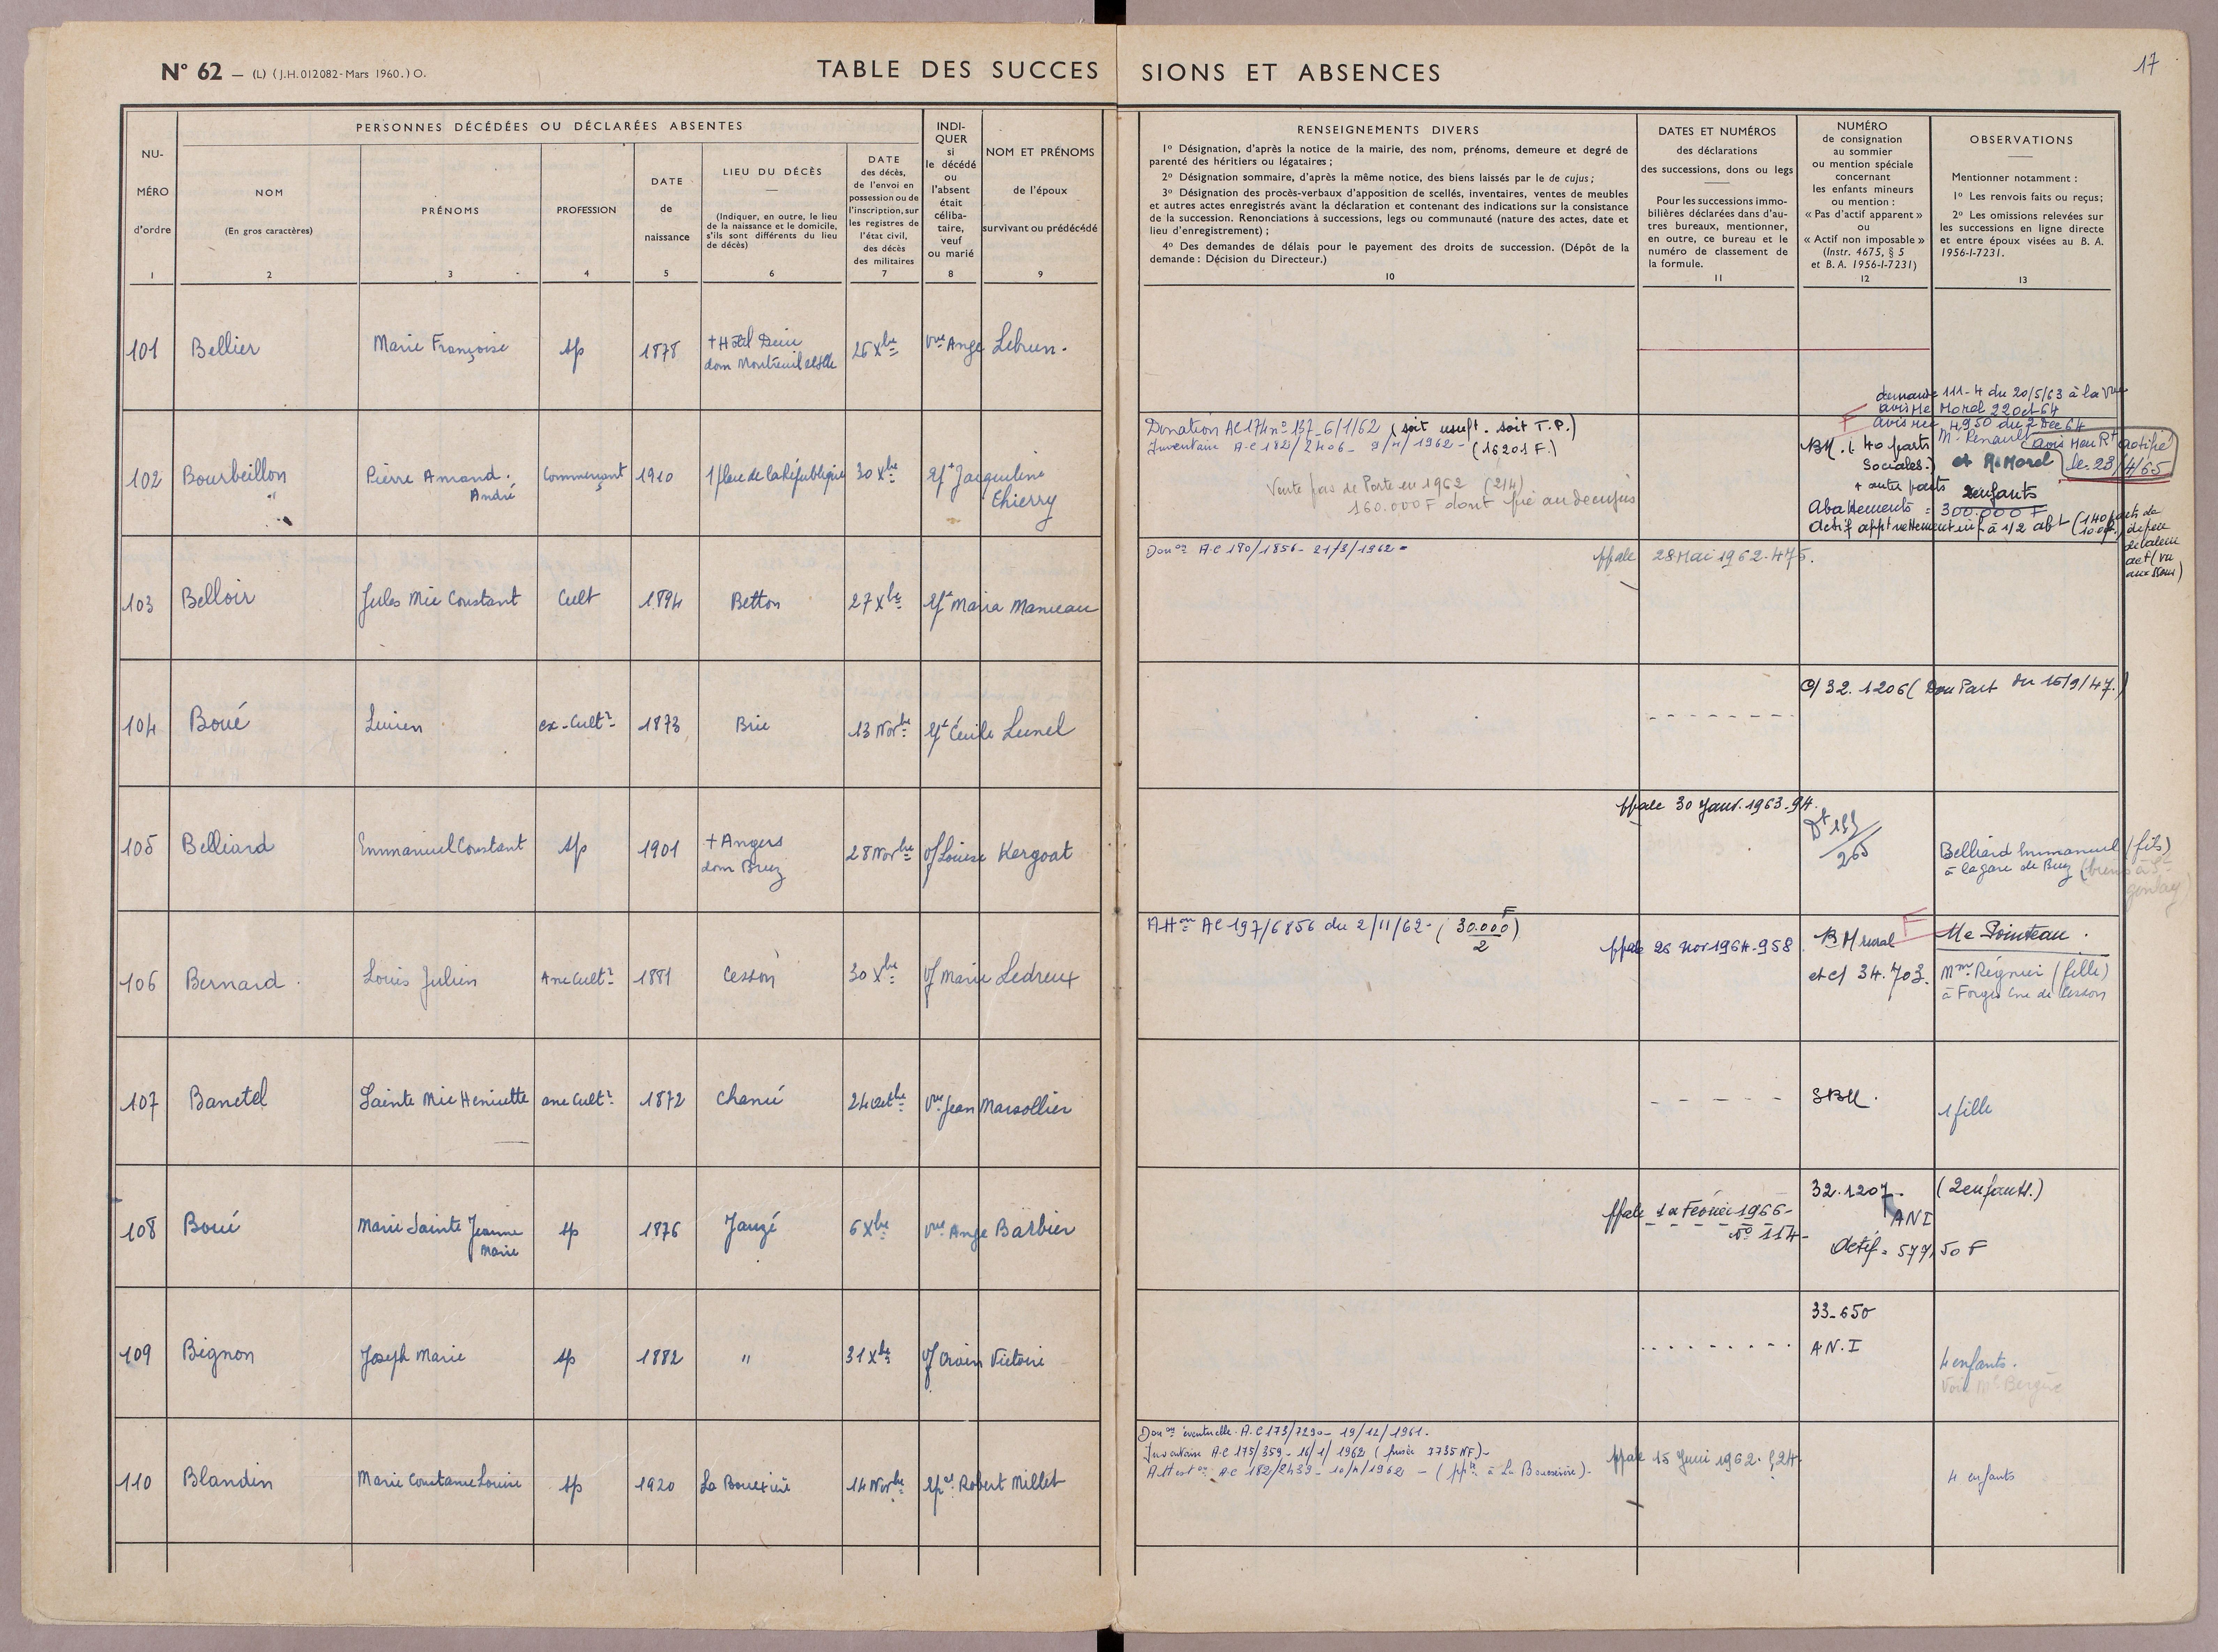 N° 62 — (L) (J.H. 012082 - Mars 1960.) O.
TABLE DES SUCCESSIONS ET ABSENCES
17
NU-
MÉRO
d'ordre
1
PERSONNES DÉCÉDÉES OU DÉCLARÉES ABSENTES
NOM
(En gros caractères)
2
PRÉNOMS
3
PROFESSION
4
DATE
de
naissance
5
LIEU DU DÉCÈS
(Indiquer, en outre, le lieu
de la naissance et le domicile,
s'ils sont différents du lieu
de décès)
6
DATE
des décès,
de l'envoi en
possession ou de
l'inscription, sur
les registres de
l'état civil,
des décès
des militaires
7
INDI-
QUER
si
le décédé
ou
l'absent
était
céliba-
taire,
veuf
ou marié
8
NOM ET PRÉNOMS
de l'époux
survivant ou prédécédé
9
RENSEIGNEMENTS DIVERS
1° Désignation, d'après la notice de la mairie, des nom, prénoms, demeure et degré de
parenté des héritiers ou légataires ;
2° Désignation sommaire, d'après la même notice, des biens laissés par le de cujus ;
3° Désignation des procès-verbaux d'apposition de scellés, inventaires, ventes de meubles
et autres actes enregistrés avant la déclaration et contenant des indications sur la consistance
de la succession. Renonciations à successions, legs ou communauté (nature des actes, date et
lieu d'enregistrement) ;
4° Des demandes de délais pour le payement des droits de succession. (Dépôt de la
demande : Décision du Directeur.)
10
DATES ET NUMÉROS
des déclarations
des successions, dons ou legs
Pour les successions immo-
bilières déclarées dans d'au-
tres bureaux, mentionner,
en outre, ce bureau et le
numéro de classement de
la formule.
11
NUMÉRO
de consignation
au sommier
ou mention spéciale
concernant
les enfants mineurs
ou mention :
« Pas d'actif apparent »
ou
« Actif non imposable »
(Instr. 4675, § 5
et B. A. 1956-I-7231)
12
OBSERVATIONS
Mentionner notamment :
1° Les renvois faits ou reçus;
2° Les omissions relevées sur
les successions en ligne directe
et entre époux visées au B. A.
1956-I-7231.
13
101 Bellier Marie Françoise sp 1878 + Hôtel Dieu 26 Xbre Vve Ange Lebrun.
dom Montreuil
demande 111-4 du 20/5/63 à la Vve
avis Me Morel 22 Oct 64
102 Bourbeillon Pierre Amand. Commerçant 1910 1 place de la République 30 Xbre Ep Jacqueline
" André Thierry
Donation AC 174 n° 157 - 6/1/62 (soit usuft. soit T.P.)
Inventaire A.C 182/2406 - 9/4/1962 - (16201 F.)
Vente fds de Porte en 1962 (214)
160.000 F dont
F 4950 du 2 Dec 64
BM. (40 parts M. Renault (avis rectifié
Sociales.) et Me Morel le 23/4/65
+ autres parts 2 enfants
Abattements = 300.000 F
103 Belloir Jules Mie Constant Cult 1894 Betton 27 Xbre Ep Maria Manceau
Donon A.C 180/1856 - 21/3/1962 - ppale 28 Mai 1962 - 475.
104 Boué Lucien ex-Cultr 1873 Brie 13 Novbre Ep Cécile Lunel
C/ 32. 1206 (Don Part du 16/9/47.)
105 Belliard Emmanuel Constant sp 1901 + Angers 28 Novbre Vf Louise Kergoat
dom Bruz
ppale 30 Janv. 1963 - 94.
Belliard Emmanuel (fils)
à la gare de Bruz
106 Bernard. Louis Julien Anc Cultr 1881 Cesson 30 Xbre Vf Marie Ledreux
AHon AC 197/6856 du 2/11/62 - (30.000 F / 2)
ppale 26 Nov 1964 - 958. BM rural F Me Pointeau.
et C/ 34. 703. Mme Régnier (fille)
à Forges Cne de Cesson
107 Banctel Sainte Mie Henriette anc Cultr 1872 Chancé 24 Octbre Vve Jean Marsollier
SBM. 1 fille
108 Boué Marie Sainte Jeanne sp 1876 Janzé 6 Xbre Vve Ange Barbier
Marie
ppale 1er Février 1966 - 32. 1207 - (2 enfants.)
N° 114 - ANI
Actif = 577,50 F
109 Bignon Joseph Marie sp 1882 " 31 Xbre Vf Victoire
33 - 650
A.N.I
4 enfants.
110 Blandin Marie Constance Louise sp 1920 La Bouexière 14 Novbre Epse Robert Millet
Donon éventuelle. A.C 173/7290 - 19/12/1961.
Inventaire A.C 175/359 - 16/1/1962 (prisée 7735 NF) -
Atteston A.C 182/2439 - 10/4/1962 - (ppté à La Bouexière).
ppale 15 Juin 1962.
4 enfants